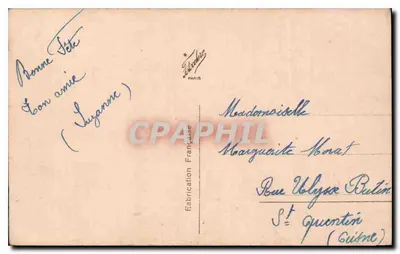 Bonne Fête
Ton amie
(Suzanne)
PARIS
Fabrication Française
CPARHIF.COM
Mademoiselle
Marguerite Morat
Rue Ulysse Butin
St Quentin
(Aisne)